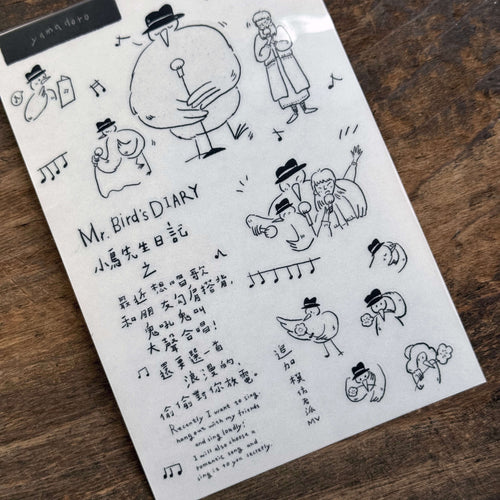 yamadoro
Mr. Bird's DIARY
小鳥先生日記
之
最近想唱歌
和朋友勾肩搭背,
鬼吼鬼叫
大聲合唱!
還要選一首
浪漫的,
偷偷對你放電。
Recently I want to sing,
hang out with my friends
and sing loudly;
I will also choose a
romantic song and
sing it to you secretly.
追加模仿名派MV